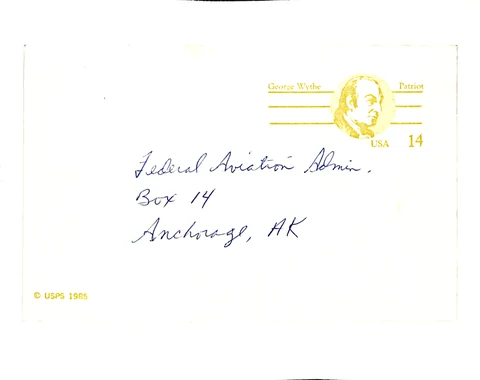 George Wythe Patriot
USA 14
Federal Aviation Admin.
Box 14
Anchorage, AK
© USPS 1985